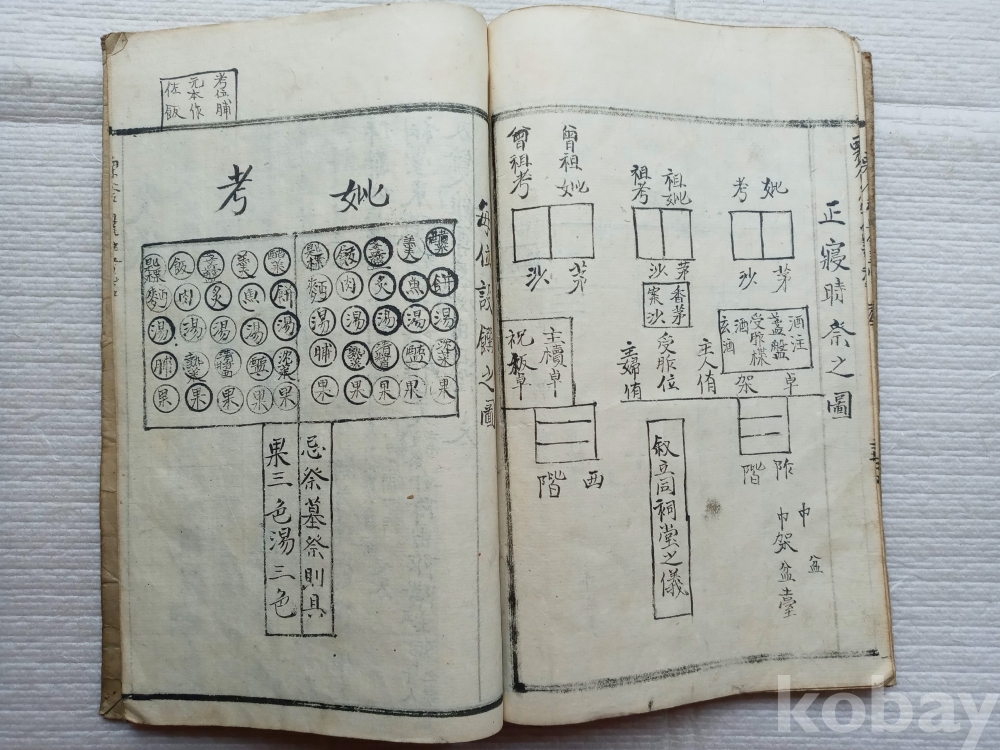 正寢時祭之圖
妣
考
祖妣
祖考
曾祖妣
曾祖考
茅
沙
茅
沙
茅
沙
香茅
案沙
酒注
盞盤
受胙楪
酒
玄酒
卓
架
主人侑
受胙位
主婦侑
主櫝卓
祝板卓
阼
階
西
階
叙立同祠堂之儀
巾
巾架
盆
盆臺
每位設饌之圖
考位脯
元本作
佐飯
妣
考
匙楪
飯
盞盤
羹
醋菜
匙楪
飯
盞盤
羹
醋菜
麵
肉
炙
魚
餠
麵
肉
炙
魚
餠
湯
湯
湯
湯
湯
湯
湯
湯
湯
湯
脯
熟菜
淸醬
醢
沈菜
脯
熟菜
淸醬
醢
沈菜
果
果
果
果
果
果
果
果
果
果
忌祭墓祭則具
果三色湯三色
kobay